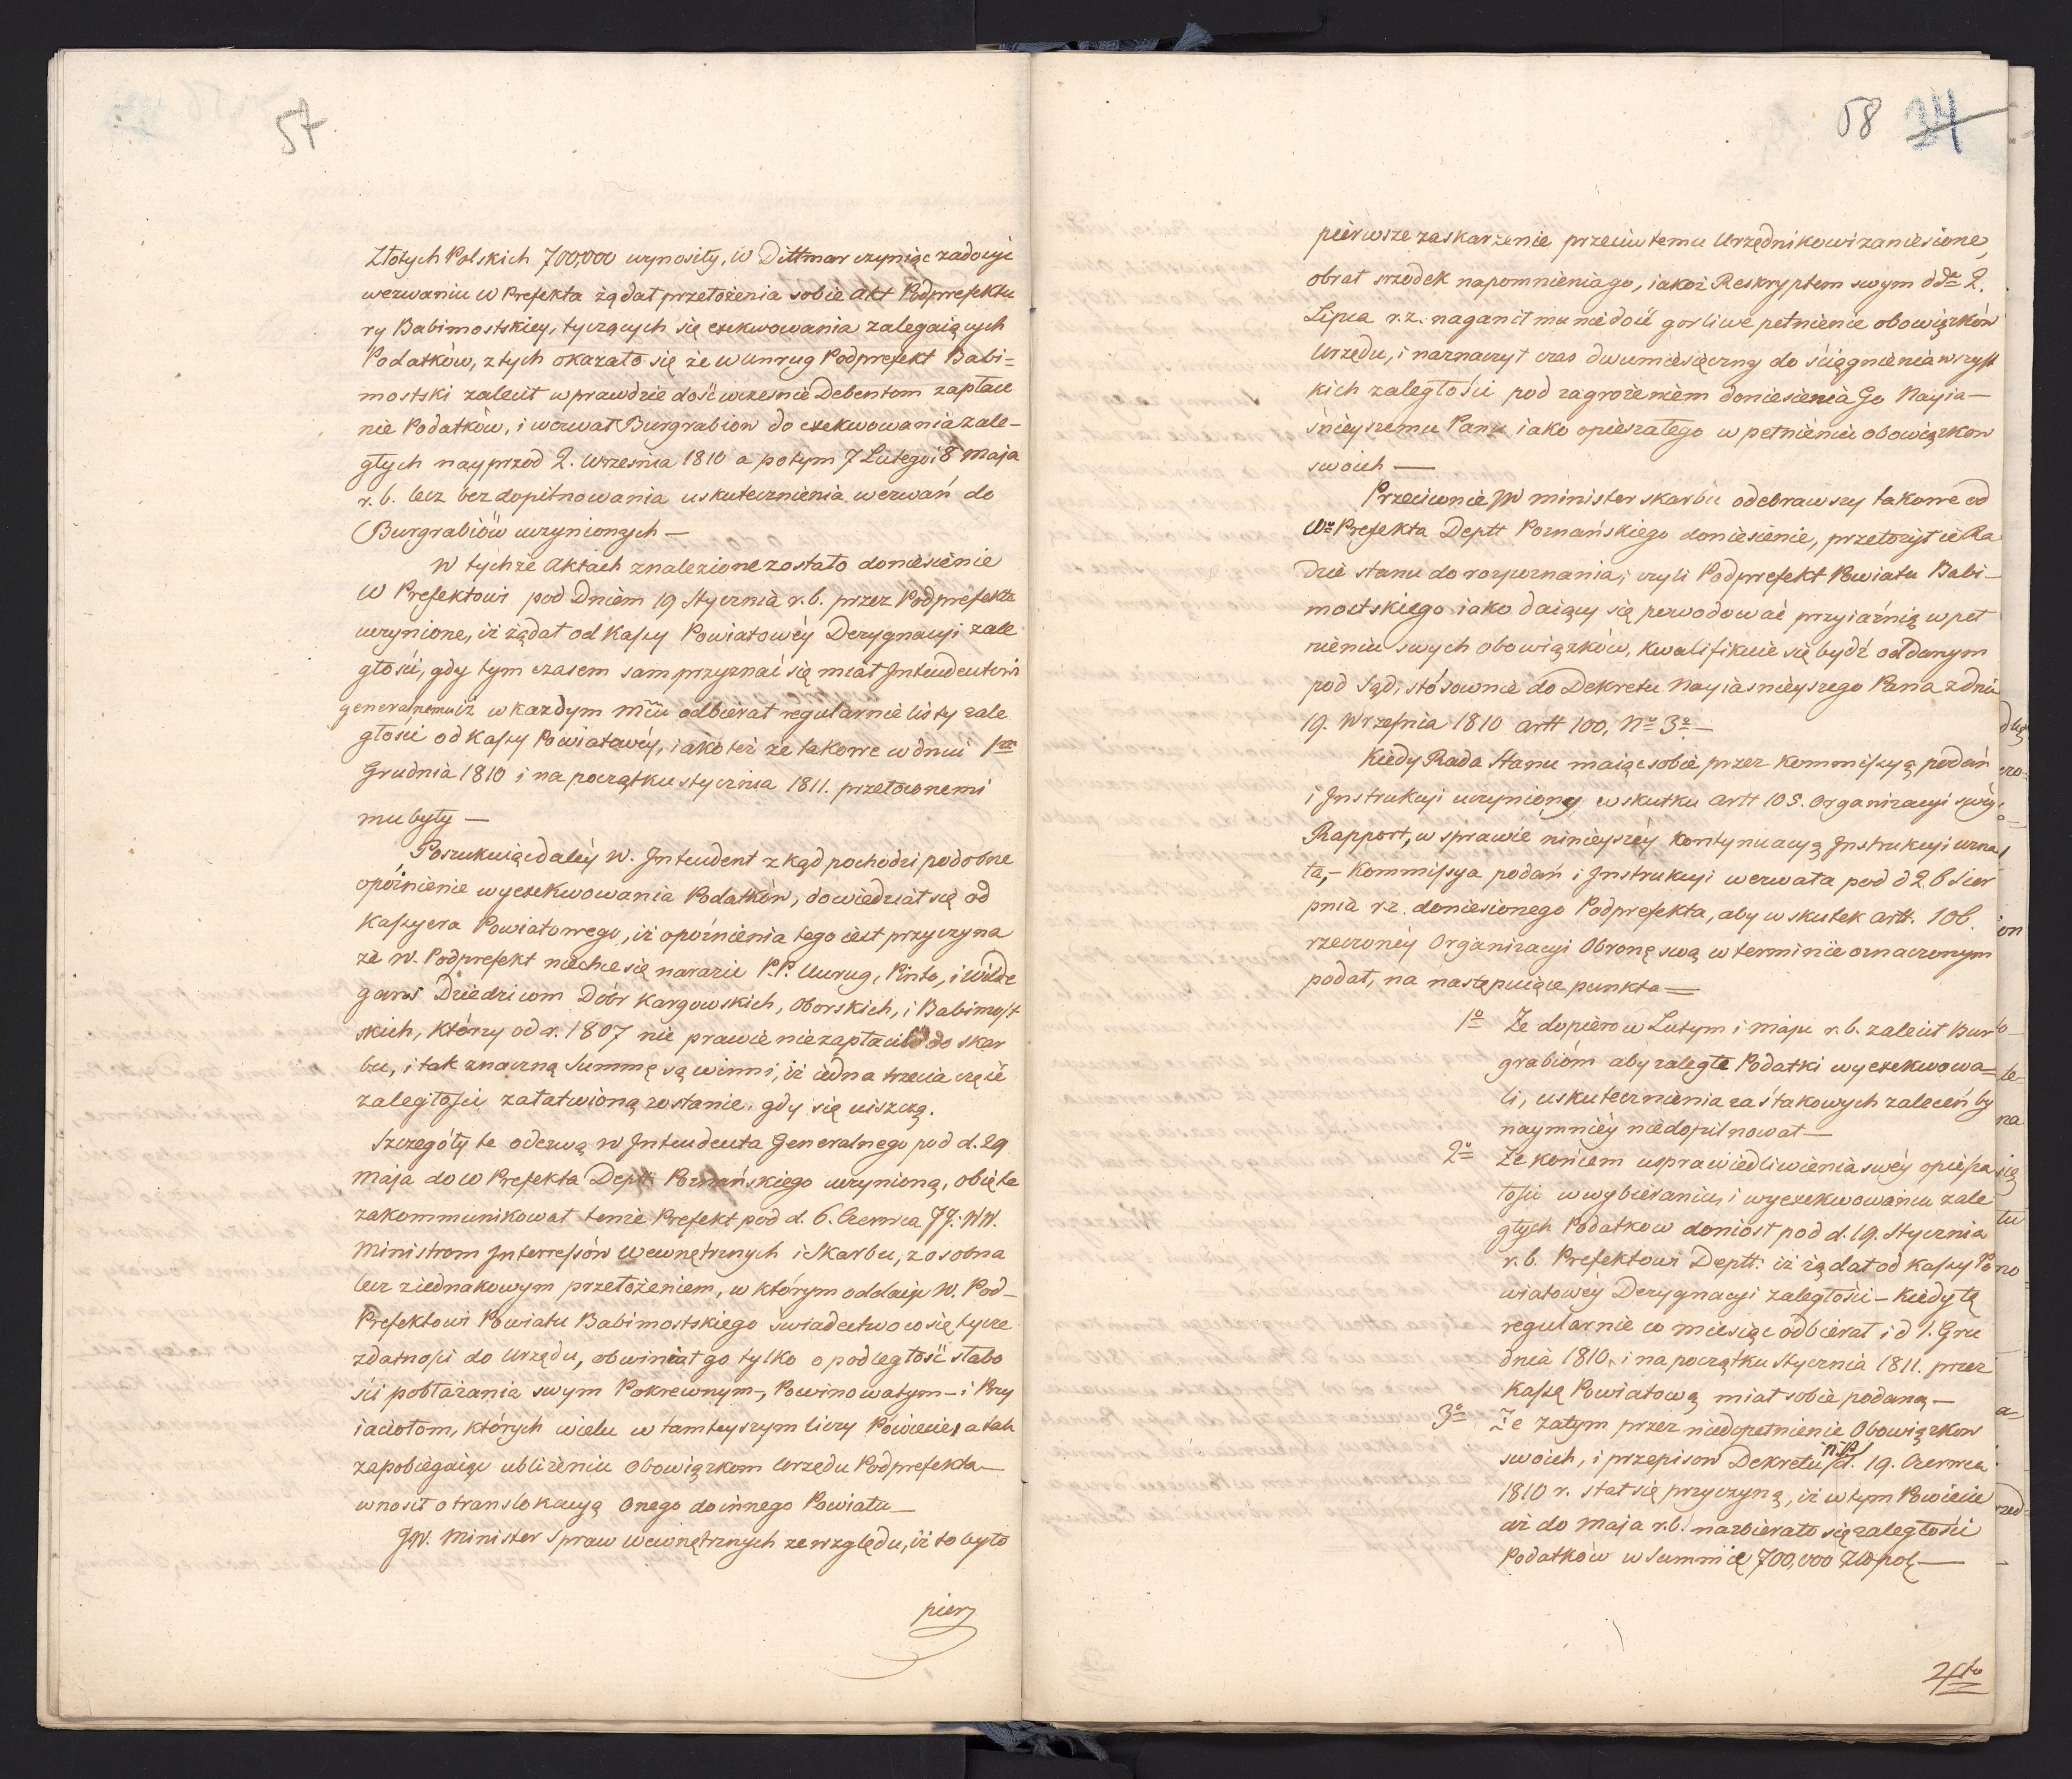 57
Złotych Polskich 700,000 wynosiły, W Dittmar czyniąc zadosyć
wezwaniu W Prefekta żądał przełożenia sobie Akt Podprefektu
ry Babimostskiey, tyczących się exekwowania zalegaiących
Podatków, z tych okazało się że W Unrug Podprefekt Babi=
mostski zalecił wprawdzie dość wcześnie Debentom zapłace
nie Podatków, i wezwał Burgrabiow do exekwowania zale-
głych nayprzod 2. Września 1810 a potym 7 Lutego i 8 Maja
r. b. lecz bez dopilnowania uskutecznienia wezwań do
Burgrabiów uczynionych —
W tychże Aktach znalezione zostało doniesienie
W Prefektowi pod Dniem 19 Stycznia r. b. przez Podprefekta
uczynione, iż żądał od Kassy Powiatowéy Dezygnacyi zale
głości, gdy tym czasem sam przyznać się miał Intendentowi
generalnemu iż w każdym mcu odbierał regularnie listy zale
głości od Kassy Powiatowéy, iako też że takowe w dniu 1m
Grudnia 1810 i na początku stycznia 1811. przełożonemi
mu były —
Poszukuiąc daléy W. Intendent zkąd pochodzi podobne
opóźnienie wyexekwowania Podatków, dowiedział się od
Kassyera Powiatowego, iż opóźnienia tego iest przyczyna
że W. Podprefekt niechce się narazić P.P. Unrug, Pinto, i Wilde
gans Dziedzicom Dóbr Kargowskich, Oborskich, i Babimost
skich, którzy od r. 1807 nic prawie niezapłacili do skar
bu, i tak znaczną Summę są winni, iż iedna trzecia część
zaległości załatwioną zostanie, gdy się uiszczą.
Szczegóły te odezwą W Intendenta Generalnego pod d. 29
Maja do W Prefekta Deptt Poznańskiego uczynioną, obięte
zakommunikował tenże Prefekt pod d. 6. Czerwca JJ: WW.
Ministrom Interressów Wewnętrznych i Skarbu, z osobna
lecz z iednakowym przełożeniem, w którym oddaiąc W. Pod-
Prefektowi Powiatu Babimostskiego świadectwo co się tycze
zdatności do Urzędu, obwiniał go tylko o podległość słabo
ści pobłażania swym Pokrewnym-, Powinowatym- i Przy
iaciołom, których wielu w tamteyszym liczy Powiecie, a tak
zapobiegaiąc ubliżeniu Obowiązkom Urzędu Podprefekta
wnosił o translokacyą Onego do innego Powiatu —
JW. Minister Spraw Wewnętrznych ze względu, iż to było
pier
58 34
pierwsze zaskarżenie przeciw temu Urzędnikowi zaniesione,
obrał srzodek napomnienia go, iakoż Reskryptem swym d dn 2.
Lipca r. z. naganił mu niedość gorliwe pełnienie obowiązków
Urzędu, i naznaczył czas dwumiesięczny do ściągnienia wszyst
kich zaległości pod zagrożeniem doniesienia Go Nayia—
śnieyszemu Panu iako opieszałego w pełnieniu obowiązkow
swoich —
Przeciwnie JW Minister Skarbu odebrawszy takowe od
Wo Prefekta Deptt Poznańskiego doniesienie, przełożył ie Ra
dzie stanu do rozpoznania; czyli Podprefekt Powiatu Babi—
mostskiego iako daiący się powodować przyiaźnią w peł
nieniu swych obowiązków, kwalifikuie się bydź oddanym
pod Sąd, stósownie do Dekretu Nayiaśnieyszego Pana z dnia
19. Września 1810 artt 100, No 3o —
Kiedy Rada Stanu maiąc sobie przez Kommissyą podań
i Instrukcyi uczyniony w skutku artt 105. Organizacyi swéy
Rapport, w sprawie ninieyszéy kontynuacyą Instrukcyi uzna
ła, — Kommissya podań i Instrukcyi wezwała pod d 26 Sier
pnia r z. doniesionego Podprefekta, aby w skutek artt. 106.
rzeczonéy Organizacyi Obronę swą w terminie oznaczonym
podał, na następuiące punkta =
1o Że dopiero w Lutym i Maju r. b. zalecił Bur
grabióm aby zaległe Podatki wyexekwowa=
li, uskutecznienia zaś takowych zaleceń by
naymniéy niedopilnował —
2o Że końcem usprawiedliwienia swéy opiesza
łości w wybieraniu, i wyexekwowaniu zale
głych Podatkow doniosł pod d. 19. Stycznia
r. b. Prefektowi Deptt: iż żądał od Kassy Po
wiatowéy Dezygnacyi zaległości — Kiedy tę
regularnie co miesiąc odbierał i d 1. Gru
dnia 1810, i na początku Stycznia 1811. przez
Kassę Powiatową miał sobie podaną —
3o Że zatym przez niedopełnienie Obowiązkow
swoich, i przepisow Dekretu d. 19. Czerwca
1810 r. stał się przyczyną, iż w tym Powiecie
aż do Maja r. b. nazbierało się zaległości
Podatków w Summie 700,000 Złłpol —
4to